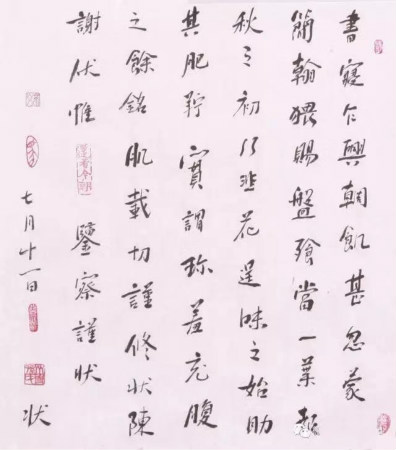 晝寢乍興朝飢甚忽蒙
簡翰猥賜盤飧當一葉報
秋之初乃韭花逞味之始助
其肥羜實謂珍羞充腹
之餘銘肌載切謹修狀陳
謝伏惟 鑒察謹狀
七月十一日 狀